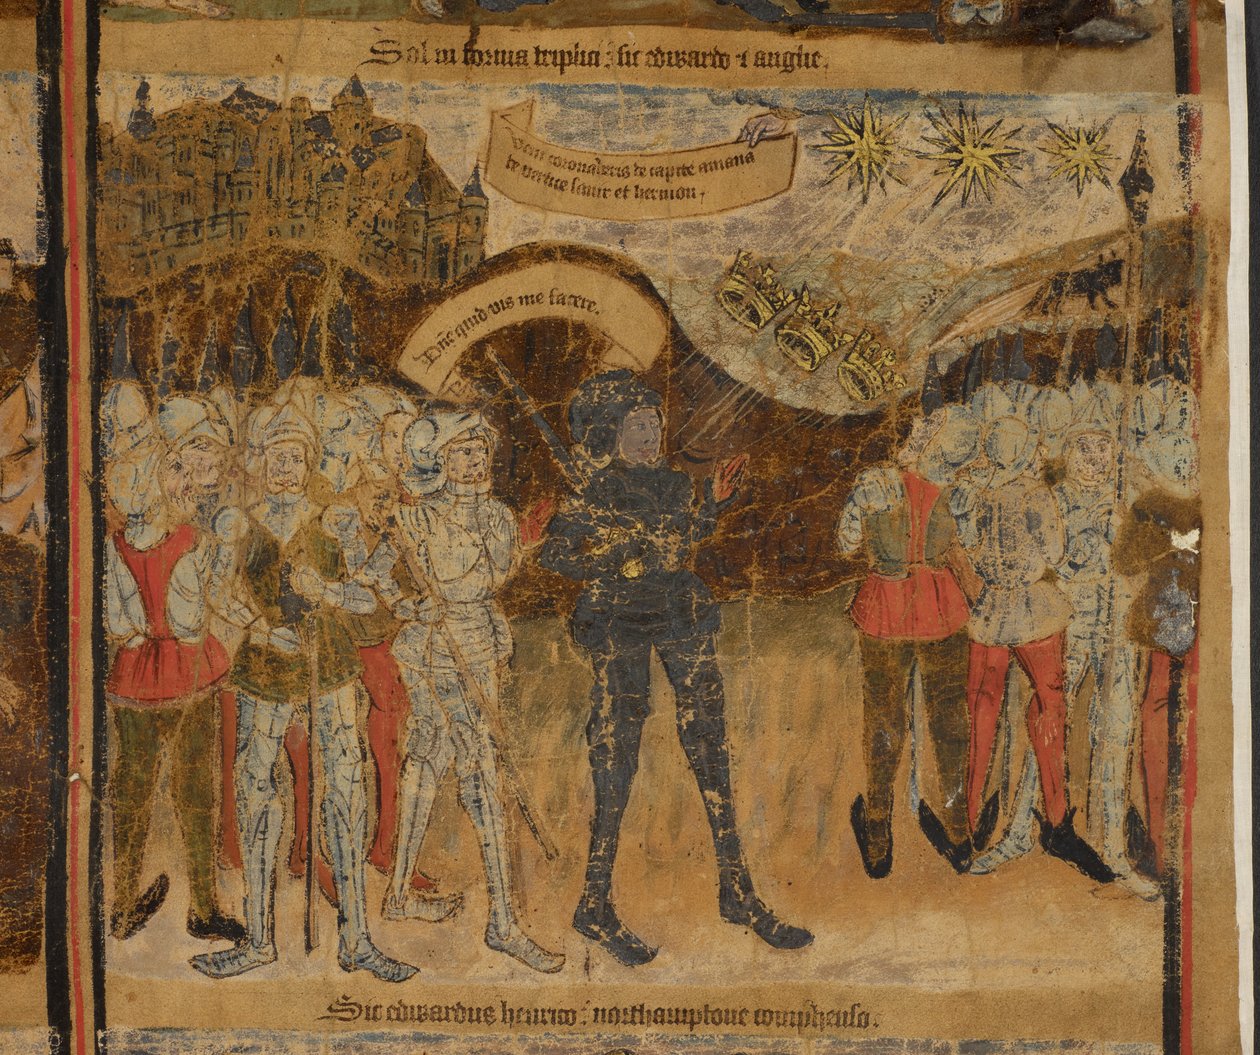 Sol in forma triplici : sic edwardo 4 anglie.
Veni coronaberis de capite amana
de vertice sanir et hermon,
Dñe quid vis me facere.
Sic edwardus henrico : northamptone comp̱henso.